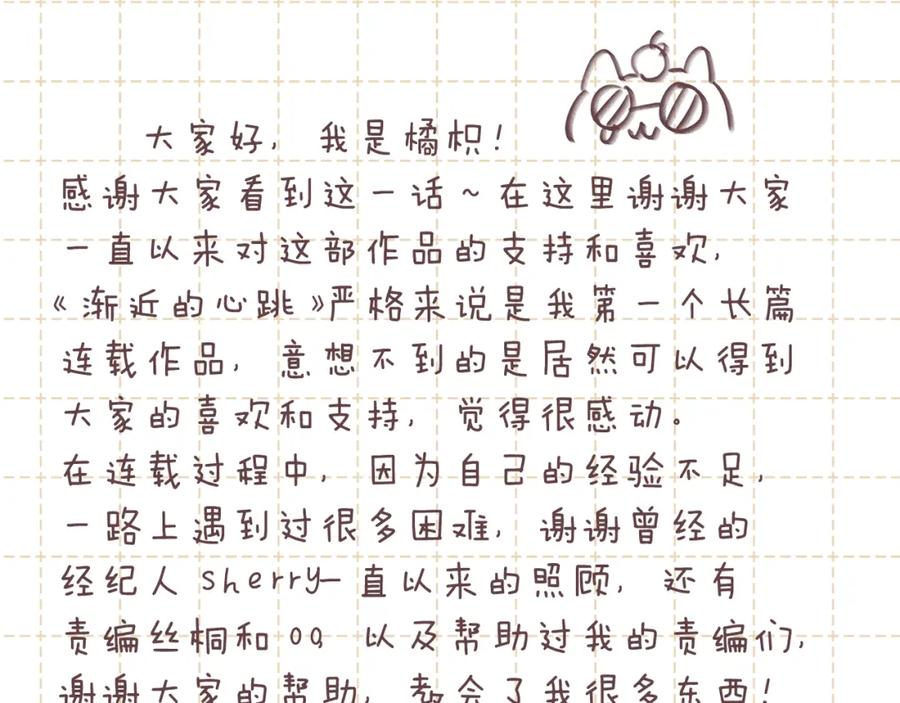 大家好，我是橘枳！
感谢大家看到这一话~在这里谢谢大家
一直以来对这部作品的支持和喜欢，
《渐近的心跳》严格来说是我第一个长篇
连载作品，意想不到的是居然可以得到
大家的喜欢和支持，觉得很感动。
在连载过程中，因为自己的经验不足，
一路上遇到过很多困难，谢谢曾经的
经纪人sherry一直以来的照顾，还有
责编丝桐和QQ以及帮助过我的责编们，
谢谢大家的帮助，教会了我很多东西！